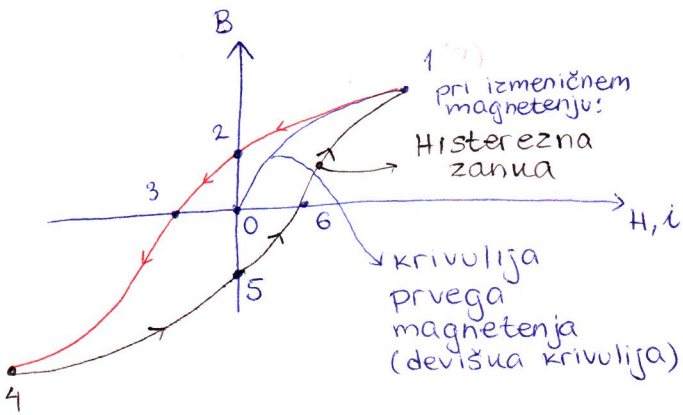 B
1
pri izmeničnem
magnetenju:
Histerezna
zanka
2
3
0
6
H, i
5
krivulija
prvega
magnetenja
(deviška krivulija)
4